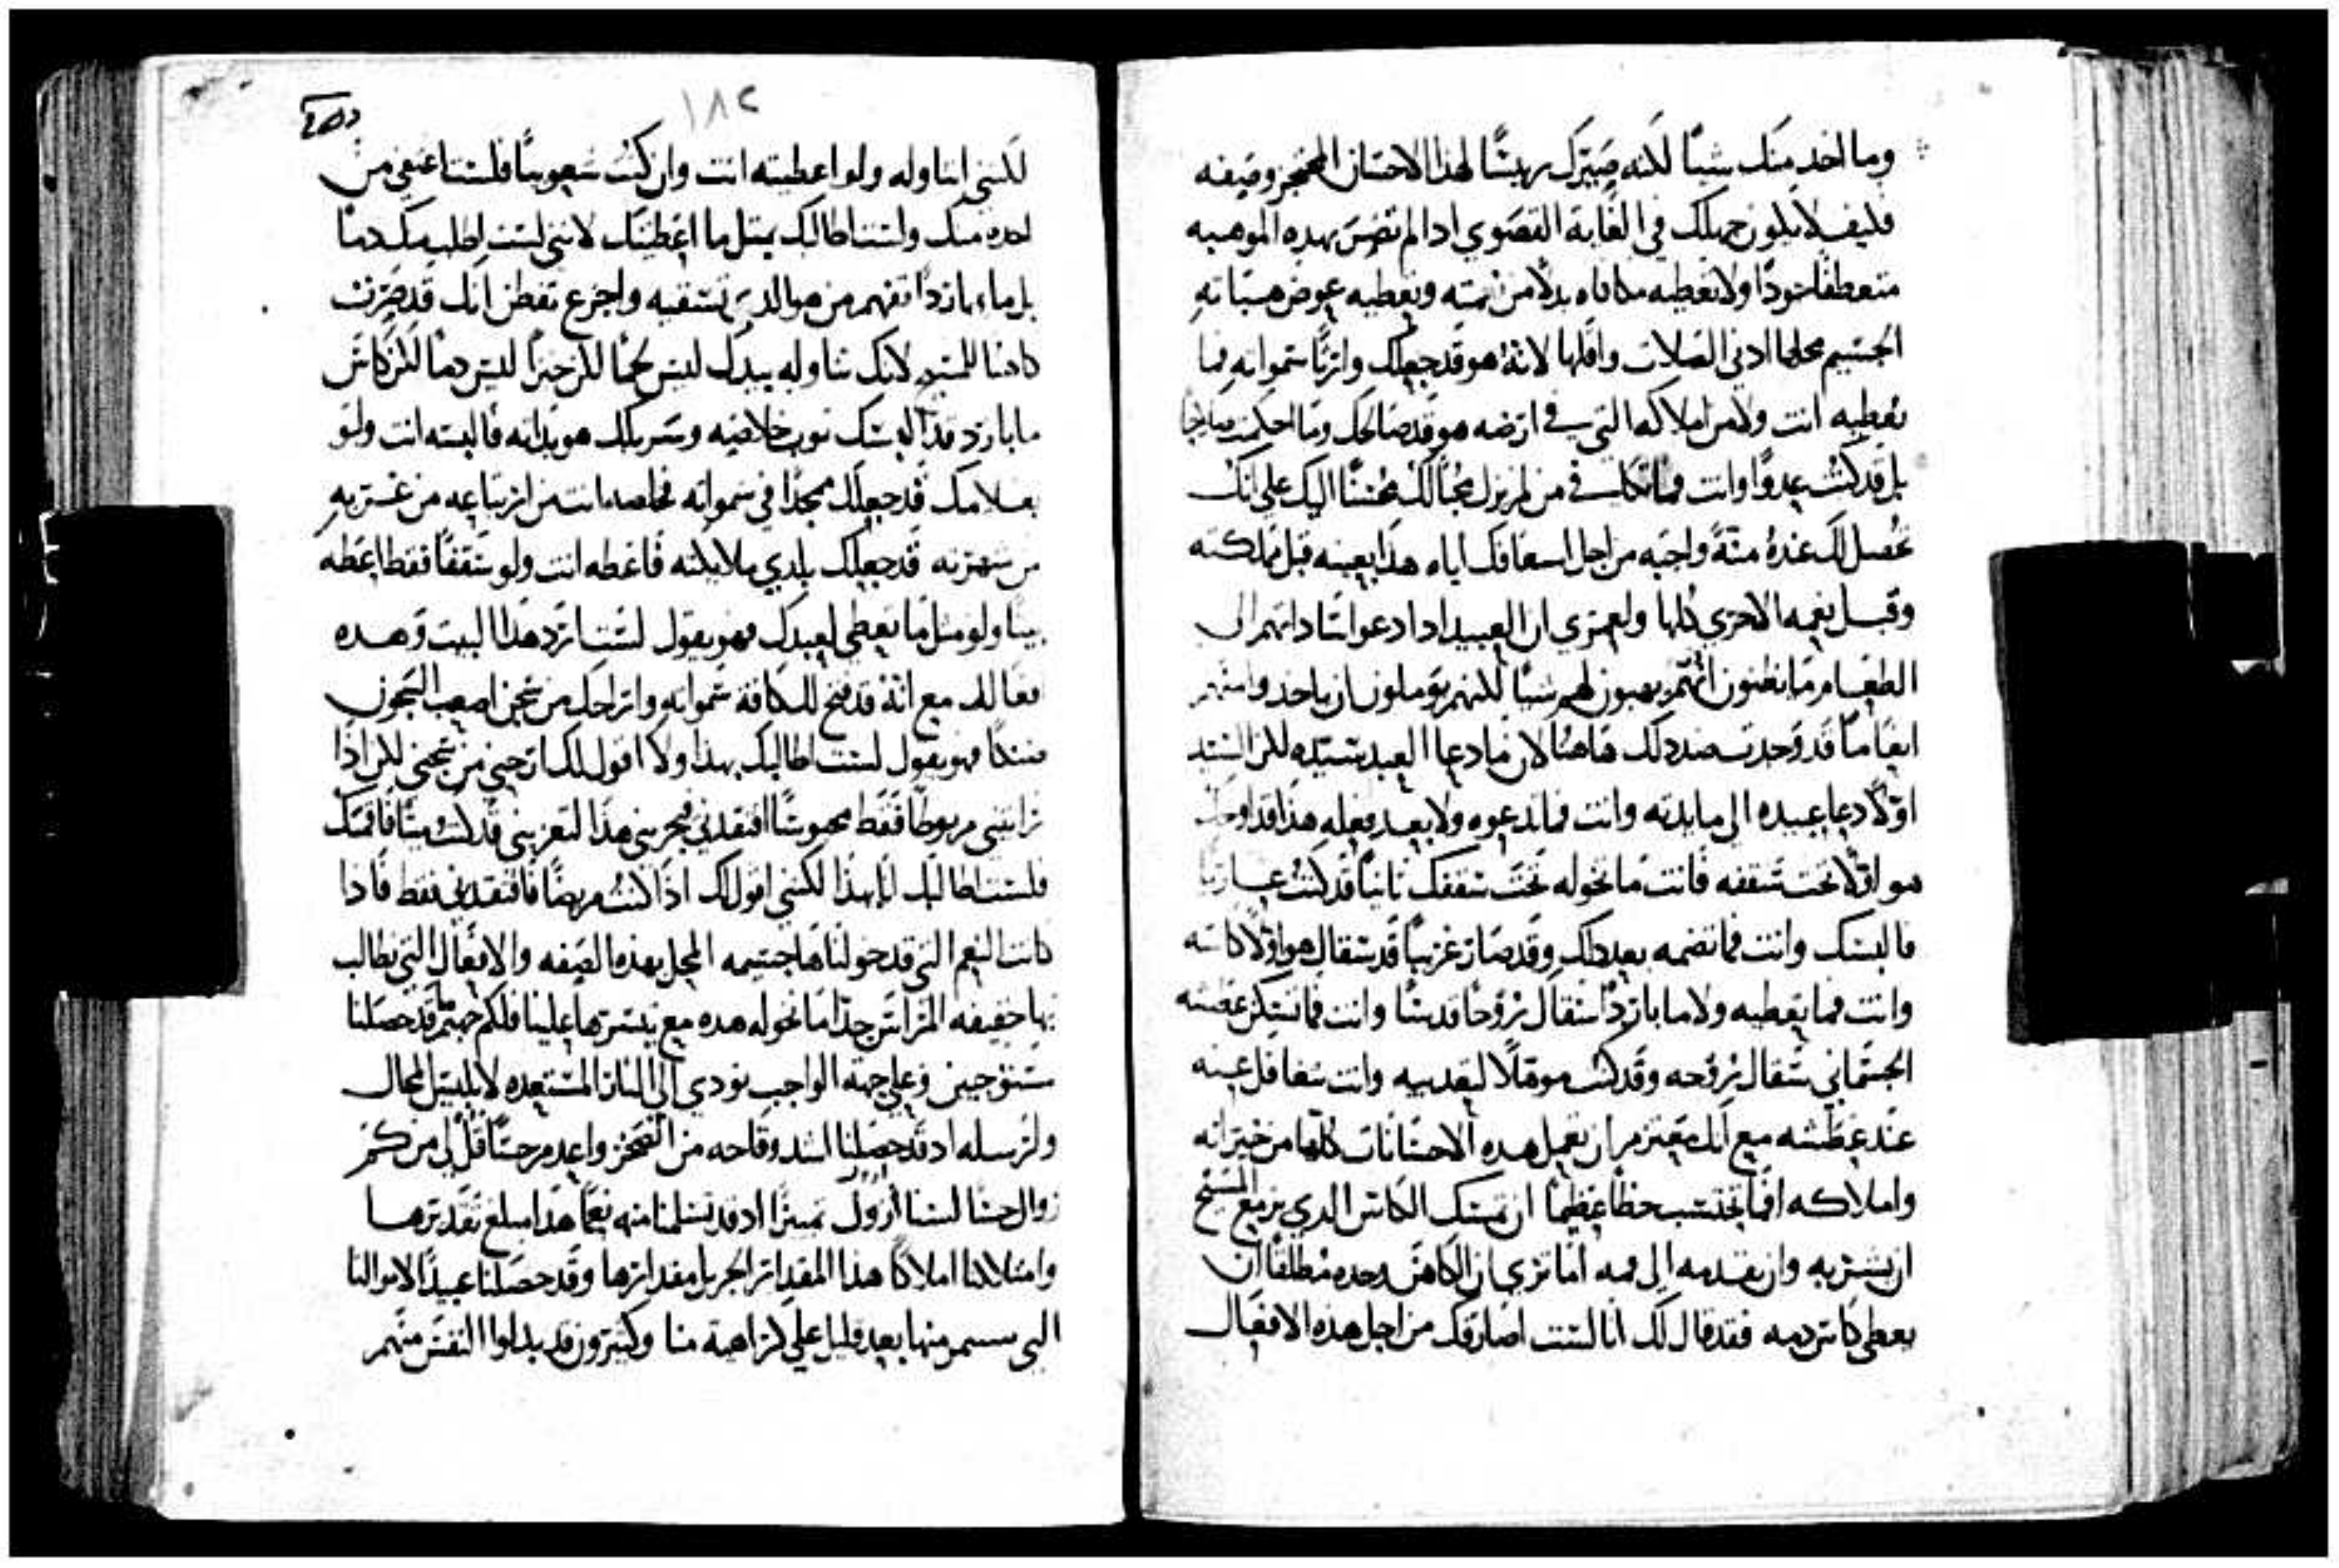 وما اخد منك شيئًا لكنه صيرك رييسًا لهذا الاحسان المعجز وصفه
فكيف لا يكون جهلك في الغاية القصوي ادا لم تضرس بهده الموهبه
متعطفًا جودًا ولا تعطيه مكافاه بدلًا من نعمته وتعطيه عوض هباته
الجسيم محلها ادني الصلات واقلها لانه هو قد جعلك وارثًا سمواته فما
تعطيه انت ولا من املاكه التي في ارضه هو قد صالحك وما احكمت صالحًا
بل قد كنت عدوًا وانت فما تكافي من لم يزل محبًا لك محسنًا اليك علي انك
تحصل لك عنده منة واجبه من اجل اسعافك اياه هذا بعينه قبل مملكته
وقبل نعمه الاخري كلها ولعمري ان العبيد ادا دعوا ساداتهم الي
الطعام ما يظنون انهم يهبون لهم شيئًا لكنهم يوملون ان ياخدوا منهم
ايضا ما قد وحدت ضد دلك هاهنا لان ما دعا العبد سيده لكن السيد
اولًا دعا عبيده الي مايدته وانت فما تدعوه ولا بعد فعله هذا قد اوجك
هو اولًا تحت سقفه فانت ما تخوله تحت سقفك ثانيًا قد كنت عاريًا
فالبسك وانت فما تضمه بعد دلك وقد صار غريبًا قد سقاك هو اولًا كاسه
وانت فما تعطيه ولا ما باردًا سقاك روحًا قدسًا وانت فما تسكن عطشه
الجسماني سقاك روحه وقد كنت موهلًا لتعديبه وانت تتغافل عنه
عند عطشه مع انك معتزم ان تعمل هده الاحسانات كلها من خيراته
واملاكه افما تحتسب حظًا عظيمًا ان تمسك الكاس الدي يزمع المسيح
ان يشربه وان تقدمه الي فمه اما تري ان الكاهن وحده مطلقًا ان
يعطي كاس دمه فقد قال لك انا لست اضارقك من اجل هده الافعال
١٨٢
لكنني اتناوله ولو اعطيته انت وان كنت شعوبيًا فلست اعتفي من
اخده منك ولست اطالبك بمثل ما اعطيتك لانني لست اطلب منك دمًا
بل ماء باردًا تفهم من هو الدي تسقيه واجزع تفطن انك قد صرت
كاهنا للمسيح لانك تناوله بيدك ليس لحمًا لكن خبزًا ليس دمًا لكن كاس
ما بارد قد البسك توب خلاصه وسربلك هو بداته فالبسه انت ولو
بغلامك قد جعلك ممجدًا في سمواته فخلصه انت من ارتياعه من غربته
من شهرته قد جعلك بلدي ملايكته فاعطه انت ولو سقفًا فقط اعطه
بيتًا ولو مثل ما تعطي لعبدك فهو يقول لست ارد هذا البيت وهده
فعالك مع انه قد فتح لك كافة سمواته وازاحك من سجن اصعب السجون
مسكًا فهو يقول لست اطالبك بهذا ولا اقول لك ازحني من سجني لكن اذا
رايتني مربوطًا فقط محبوسًا افتقدني فيجزيني هذا لتعزيني قد كنت ميتًا فاقمتك
فلست اطالبك انا بهذا لكنني اقول لك اذا كنت مريضًا فافتقدني فقط فادا
كانت النعم التي قد خولناها جسيمه المحل بهذه الصفه والافعال التي يطالب
بها خفيفه المراس جدًا ما نخوله هده مع تيسرها علينا فلكم جهنم قد حصلنا
مستوجبين وعلي جهة الواجب نودي الي النار المستعده لابليس المحال
ولرسله اد قد حصلنا اشد وقاحه من الصخر واعدم حسًا قل لي من كم
زوال حسًا لسنا اروك تميزًا اد قد تسلمنا منه نعمًا هدا مبلغ تقديرها
وامتلاكنا املاكًا هذا المقدار الجزيل مقدارها وقد حصلنا عبيدًا لاموالنا
التي سننصرم منها بعد قليل علي كراهية منا وكثيرون قد بدلوا النفس منهم